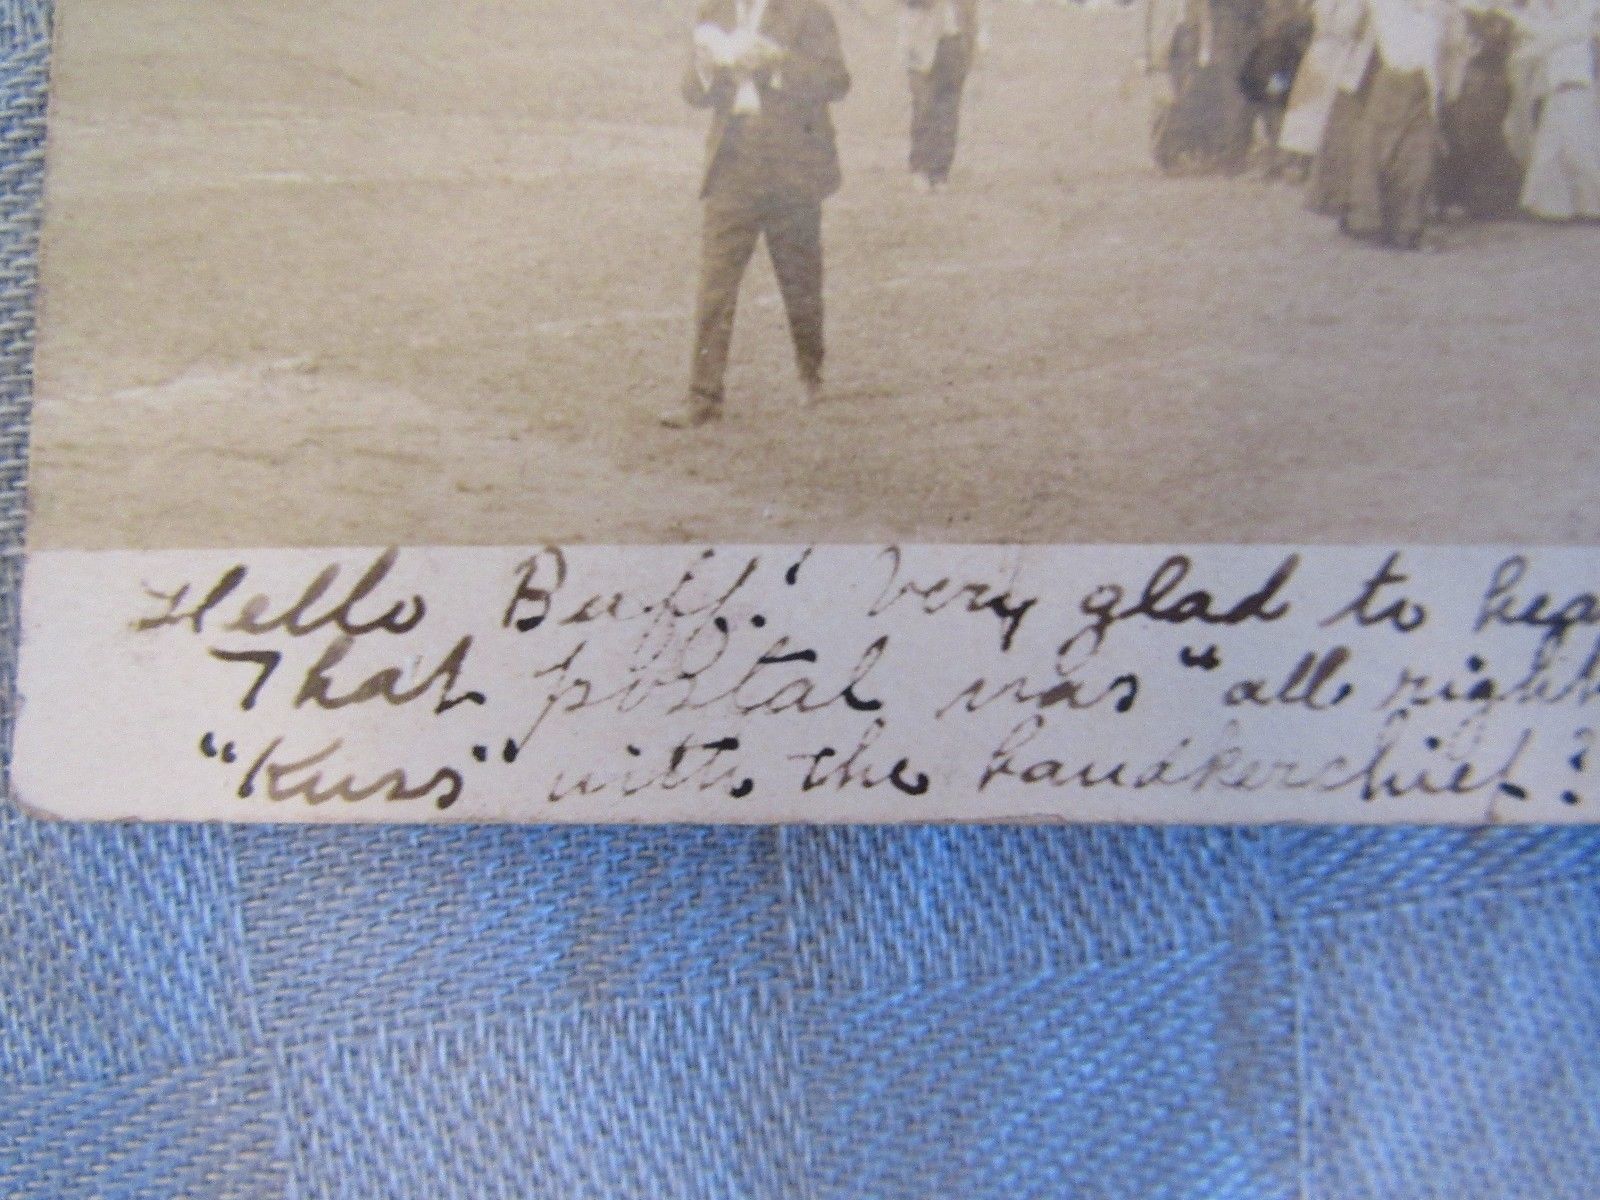 Hello Buff! Very glad to hea
That postal was "all right
"Kuss" with the handkerchief?